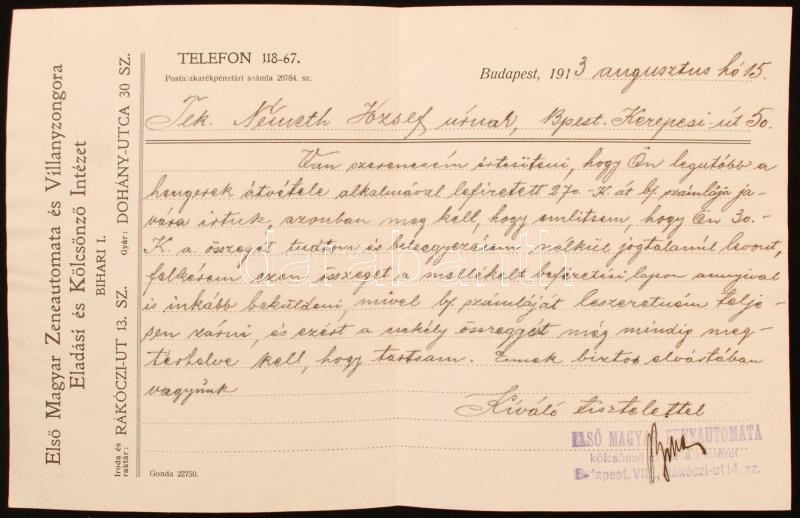 Első Magyar Zeneautomata és Villanyzongora
Eladási és Kölcsönző Intézet
BIHARI I.
Iroda és raktár: RÁKÓCZI-UT 13. SZ. Gyár: DOHÁNY-UTCA 30 SZ.
TELEFON 118-67.
Postatakarékpénztári számla 29784. sz.
Budapest, 1913 augusztus hó 15.
Tek. Németh József úrnak, Bpest. Kerepesi-út 50.
Van szerencsém értesíteni, hogy Ön legutóbb a
hengerek átvétele alkalmával lefizetett 270.- K-át b/ számlája ja-
vára irtuk, azonban meg kell, hogy említsem, hogy Ön 30.-
K. a. összegét tudtom és beleegyezésem nélkül jogtalanul levont,
felkérem ezen összeget a mellékelt befizetési lapon annyival
is inkább beküldeni, mivel b/ számláját leszeretném telje-
sen zárni, és ezért a csekély összeggel még mindig meg-
terhelve kell, hogy tartsam. Ennek biztos elvártában
vagyunk
Kiváló tisztelettel
ELSŐ MAGYAR ZENEAUTOMATA
kölcsönző
Budapest, VIII, Rákóczi-ut 14. sz.
Gonda 22750.
darabanth